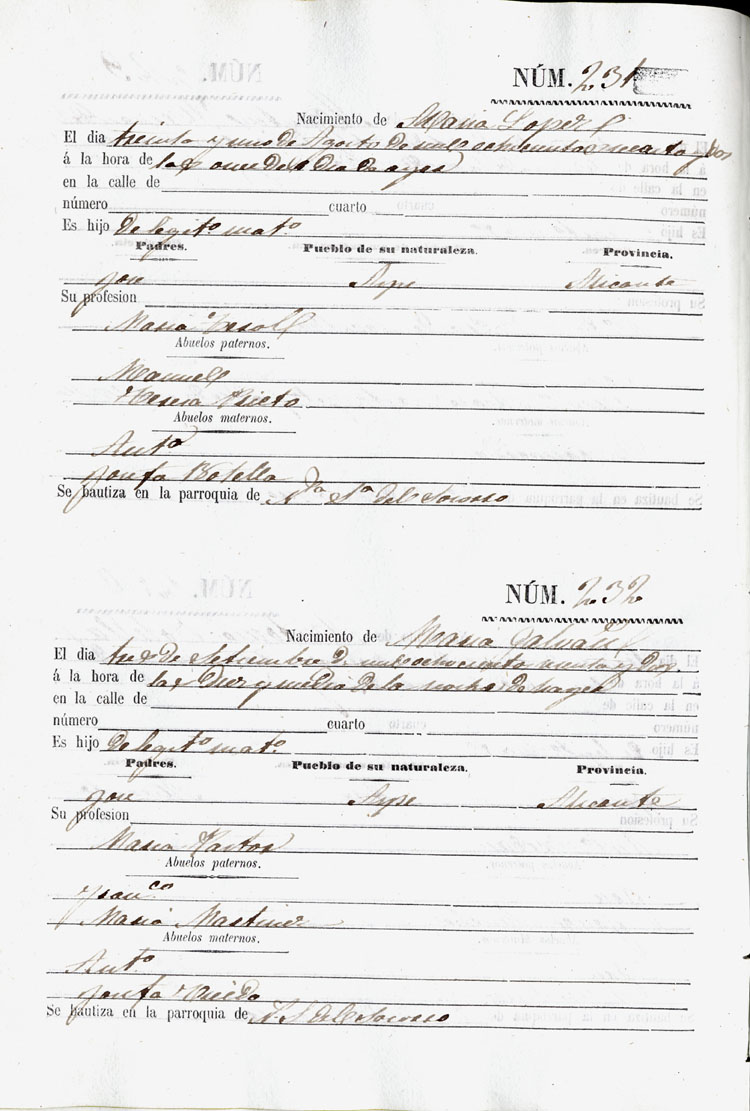 NÚM. 231
Nacimiento de Maria Lopez
El dia treinta y uno de Agosto de mil ochocientos sesenta y dos
á la hora de las once del dia de ayer
en la calle de
número cuarto
Es hijo de legit.º mat.º
Padres. Pueblo de su naturaleza. Provincia.
Jose Aspe Alicante
Su profesion
Maria
Abuelos paternos.
Manuel
Teresa Prieto
Abuelos maternos.
Ant.º
Josefa Botella
Se bautiza en la parroquia de N.ª S.ª del Socorro
NÚM. 232
Nacimiento de Maria Galvañ
El dia tres de Setiembre de mil ochocientos sesenta y dos
á la hora de las diez y media de la noche de ayer
en la calle de
número cuarto
Es hijo de legit.º mat.º
Padres. Pueblo de su naturaleza. Provincia.
Jose Aspe Alicante
Su profesion
Maria Pastor
Abuelos paternos.
Fran.co
Maria Martinez
Abuelos maternos.
Ant.º
Josefa
Se bautiza en la parroquia de N. S. del Socorro